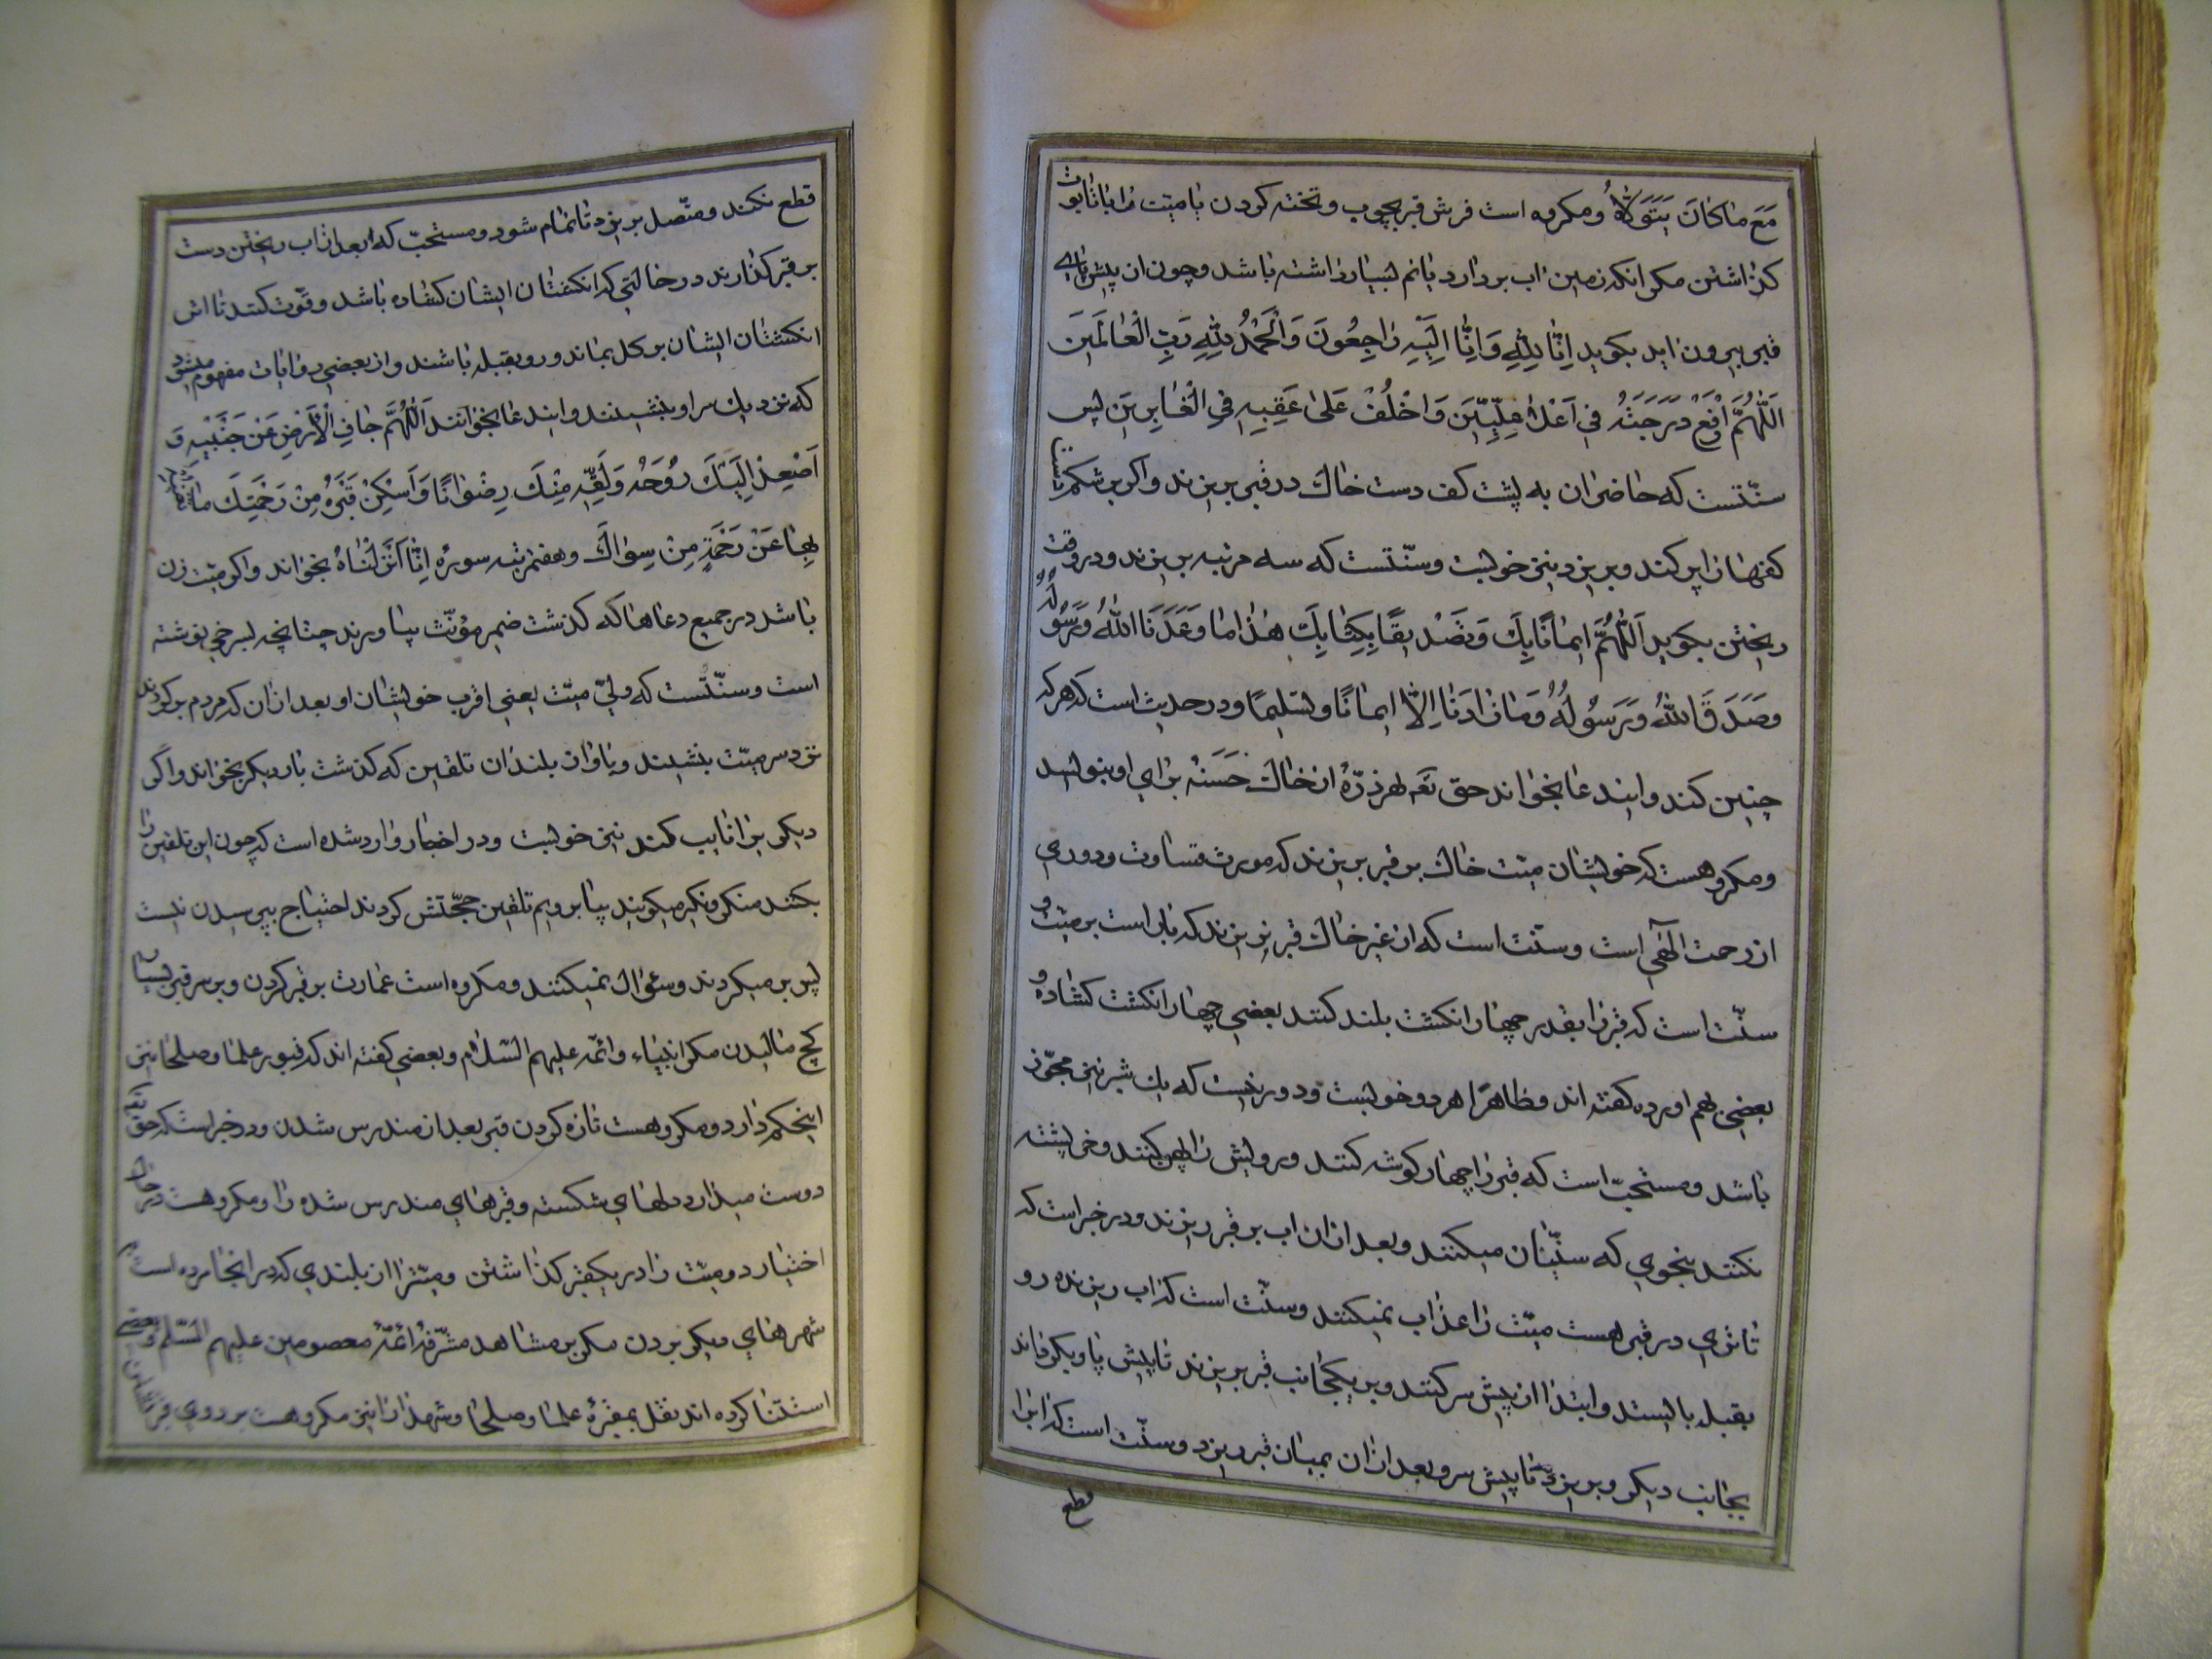 مَعَ مَا كَانَ يَتَوَلَّاهُ ومكروه است فرش قبر بچوب و تخته كردن يا ميّت را با تابوت
كذاشتن مكر انكه زمين اب بردارد يا نم بسيار داشته باشد و چون از پيش پاي
قبر بيرون ايد بكويد اِنَّا لِلّٰهِ وَاِنَّا اِلَيْهِ رَاجِعُونَ وَالْحَمْدُ لِلّٰهِ رَبِّ الْعَالَمِينَ
اَللّٰهُمَّ ارْفَعْ دَرَجَتَهُ فِي اَعْلٰا عِلِّيِّينَ وَاخْلُفْ عَلٰى عَقِبِهِ فِي الْغَابِرِينَ پس
سنّتست كه حاضران به پشت كف دست خاك در قبر بريزند و اكر بر شكم
كفها را پر كند و بريزد نيز خوبست و سنّتست كه سه مرتبه بريزند و در وقت
ريختن بكويد اَللّٰهُمَّ ايمَانًا بِكَ وَتَصْدِيقًا بِكِتَابِكَ هٰذَا مَا وَعَدَنَا اللّٰهُ وَرَسُولُهُ
وصَدَقَ اللّٰهُ وَرَسُولُهُ وَمَا زَادَنَا اِلَّا ايمَانًا وتسليمًا و در حديث است كه هر كه
چنين كند و ايندعا بخواند حق تعه بهر ذرّهٔ از خاك حَسَنَهٔ براي او بنويسد
ومكروهست كه خويشان ميّت خاك بر قبر بريزند كه مورث قساوت و دوري
از رحمت الٓهي است و سنّت است كه از غير خاك قبر نريزند كه بار است بر ميّت و
سنّت است كه قبر را بقدر چهار انكشت بلند كنند بعضي چهار انكشت كشاده و
بعضي بهم اورده كفته اند و ظاهرًا هر دو خوبست و دور نيست كه يك شبر نيز مجوّز
باشد و مستحبّ است كه قبر را چهار كوشه كنند و رويش را پهن كنند و خر پشته
نكنند بنحوي كه سنّيان ميكنند و بعد از ان اب بر قبر ريزند و در خبر است كه
تا تري در قبر هست ميّت را عذاب نميكنند و سنّت است كه اب ريزنده رو
بقبله بايستد و ابتدا از پيش سر كنند و بر يكجانب قبر بريزند تا پيش پا و بكرداند
بجانب ديكر و بريزد تا پيش سر و بعد از ان بميان قبر ريزد و سنّت است كه ابرا
قطع
قطع نكند و متّصل بريزد تا تمام شود و مستحبّ كه بعد از اب ريختن دست
بر قبر كذارند در حالتي كه انكشتان ايشان كشاده باشد و قوّت كنند تا اثر
انكشتان ايشان بر كل بماند و رو بقبله باشند و از بعضي روايات مفهوم ميشود
كه نزديك سر او بنشينند و ايندعا بخوانند اَللّٰهُمَّ جَافِ الْاَرْضَ عَنْ جَنْبَيْهِ وَ
اَصْعِدْ اِلَيْكَ رُوحَهُ وَلَقِّهِ مِنْكَ رِضْوَانًا وَاَسْكِنْ قَبْرَهُ مِنْ رَحْمَتِكَ مَا تُغْنِيهِ
بِهَا عَنْ رَحْمَةٍ مِنْ سِوَاكَ و هفتمرتبه سورهٔ اِنَّا اَنْزَلْنَاهُ بخواند و اكر ميّت زن
باشد در جميع دعاها كه كذشت ضمير مؤنّث بياورند چنانچه بسرخي نوشته
است و سنّتست كه وليّ ميّت يعني اقرب خويشان او بعد از ان كه مردم بركردند
نزد سر ميّت بنشيند و باواز بلند ان تلقين كه كذشت بار ديكر بخواند و اكر
ديكري را نايب كند نيز خوبست و در اخبار وارد شده است كه چون اين تلقين را
بكنند منكر و نكير ميكويند بيا برويم تلقين حجّتش كردند احتياج بپرسيدن نيست
پس بر ميكردند و سئوال نميكنند و مكروه است عمارت بر قبر كردن و بر سر قبر بسيار
كچ ماليدن مكر انبياء و ائمّه عليهم السّلام و بعضي كفته اند كه قبور علما و صلحا نيز
اينحكم دارد و مكروهست تازه كردن قبر بعد از مندرس شدن و در خبر است كه حق تعه
دوست ميدارد دلهاي شكسته و قبرهاي مندرس شده را و مكروهست در حال
اختيار دو ميّت را در يكقبر كذاشتن و ميّترا از بلندي كه در انجا مرده است
شهرهاي ديكر بردن مكر بر مشاهد مشرّفهٔ ائمّهٔ معصومين عليهم السّلم و بعضي
استثنا كرده اند نقل بمقبرهٔ علما و صلحا و شهدا را نيز مكروهست بر روي قبر